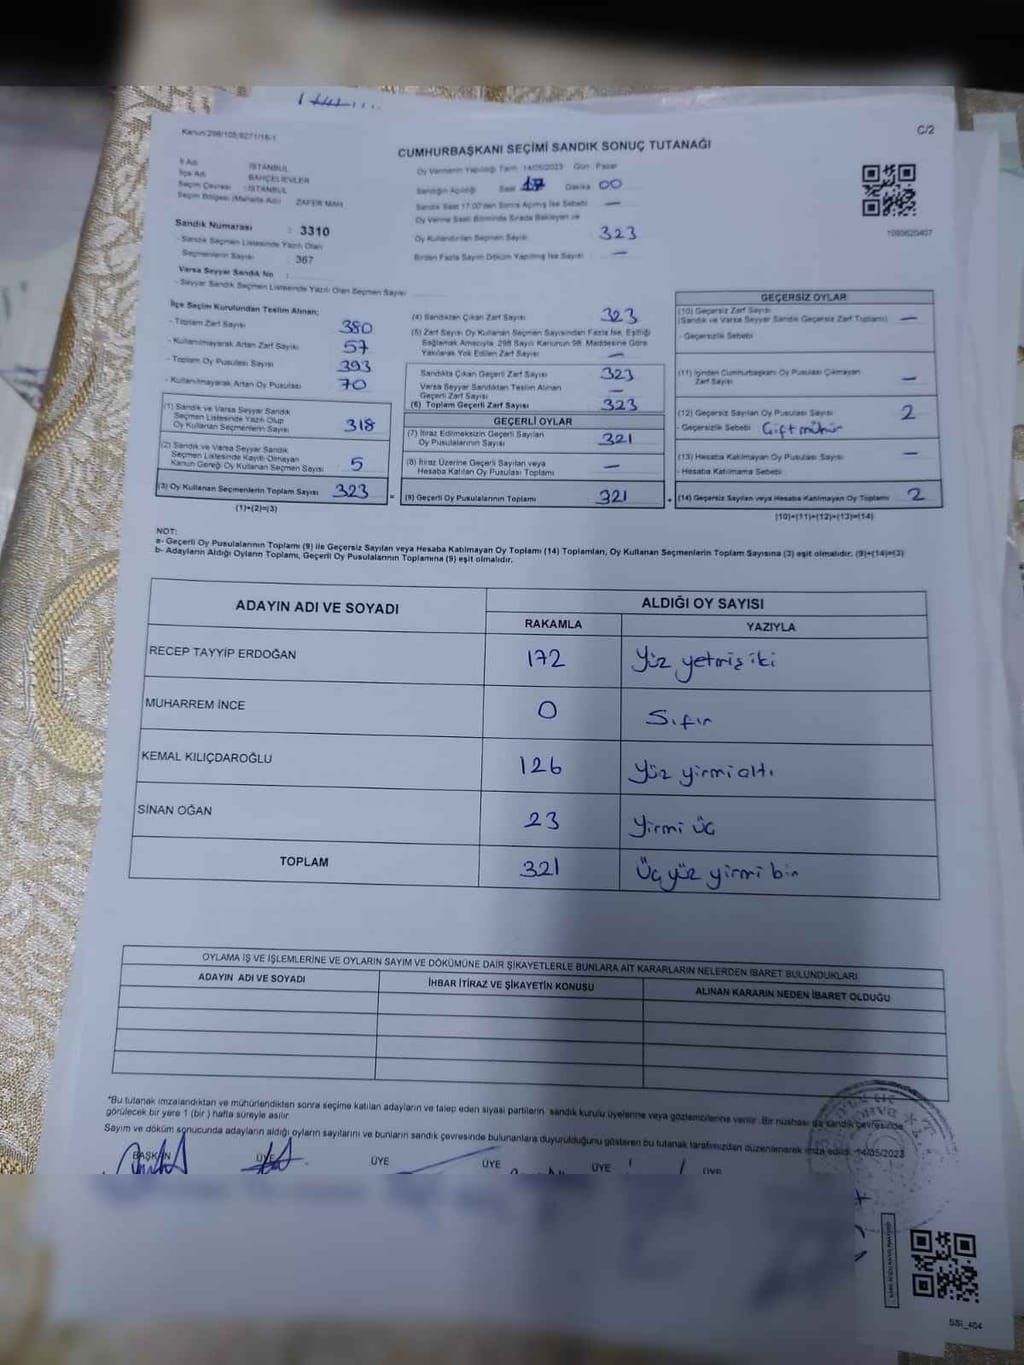 Kanun:298/105/6271/16-1
C/2
CUMHURBAŞKANI SEÇİMİ SANDIK SONUÇ TUTANAĞI
İl Adı : İSTANBUL
İlçe Adı : BAHÇELİEVLER
Seçim Çevresi : İSTANBUL
Seçim Bölgesi (Mahalle Adı) : ZAFER MAH
Oy Vermenin Yapıldığı Tarih 14/05/2023 Gün Pazar
Sandığın Açıldığı Saat 17 Dakika 00
Sandık Saat 17.00'den Sonra Açılmış İse Sebebi —
Oy Verme Saati Bitiminde Sırada Bekleyen ve
Oy Kullandırılan Seçmen Sayısı 323
Birden Fazla Sayım Döküm Yapılmış İse Sayısı —
Sandık Numarası : 3310
- Sandık Seçmen Listesinde Yazılı Olan
Seçmenlerin Sayısı : 367
Varsa Seyyar Sandık No :
- Seyyar Sandık Seçmen Listesinde Yazılı Olan Seçmen Sayısı
İlçe Seçim Kurulundan Teslim Alınan;
- Toplam Zarf Sayısı 380
- Kullanılmayarak Artan Zarf Sayısı 57
- Toplam Oy Pusulası Sayısı 393
- Kullanılmayarak Artan Oy Pusulası 70
(1) Sandık ve Varsa Seyyar Sandık
Seçmen Listesinde Yazılı Olup
Oy Kullanan Seçmenlerin Sayısı 318
(2) Sandık ve Varsa Seyyar Sandık
Seçmen Listesinde Kayıtlı Olmayan
Kanun Gereği Oy Kullanan Seçmen Sayısı 5
(3) Oy Kullanan Seçmenlerin Toplam Sayısı 323
(1)+(2)=(3)
(4) Sandıktan Çıkan Zarf Sayısı 323
(5) Zarf Sayısı Oy Kullanan Seçmen Sayısından Fazla İse, Eşitliği
Sağlamak Amacıyla 298 Sayılı Kanunun 98. Maddesine Göre
Yakılarak Yok Edilen Zarf Sayısı —
Sandıkta Çıkan Geçerli Zarf Sayısı 323
Varsa Seyyar Sandıktan Teslim Alınan
Geçerli Zarf Sayısı —
(6) Toplam Geçerli Zarf Sayısı 323
GEÇERLİ OYLAR
(7) İtiraz Edilmeksizin Geçerli Sayılan
Oy Pusulalarının Sayısı 321
(8) İtiraz Üzerine Geçerli Sayılan veya
Hesaba Katılan Oy Pusulası Toplamı —
= (9) Geçerli Oy Pusulalarının Toplamı 321
GEÇERSİZ OYLAR
(10) Geçersiz Zarf Sayısı
(Sandık ve Varsa Seyyar Sandık Geçersiz Zarf Toplamı) —
- Geçersizlik Sebebi
(11) İçinden Cumhurbaşkanı Oy Pusulası Çıkmayan
Zarf Sayısı —
(12) Geçersiz Sayılan Oy Pusulası Sayısı 2
- Geçersizlik Sebebi Çift mühür
(13) Hesaba Katılmayan Oy Pusulası Sayısı —
- Hesaba Katılmama Sebebi
+ (14) Geçersiz Sayılan veya Hesaba Katılmayan Oy Toplamı 2
(10)+(11)+(12)+(13)=(14)
NOT:
a- Geçerli Oy Pusulalarının Toplamı (9) ile Geçersiz Sayılan veya Hesaba Katılmayan Oy Toplamı (14) Toplamları, Oy Kullanan Seçmenlerin Toplam Sayısına (3) eşit olmalıdır. (9)+(14)=(3)
b- Adayların Aldığı Oyların Toplamı, Geçerli Oy Pusulalarının Toplamına (9) eşit olmalıdır.
ADAYIN ADI VE SOYADI
ALDIĞI OY SAYISI
RAKAMLA YAZIYLA
RECEP TAYYİP ERDOĞAN 172 Yüz yetmiş iki
MUHARREM İNCE 0 Sıfır
KEMAL KILIÇDAROĞLU 126 Yüz yirmi altı
SİNAN OĞAN 23 Yirmi üç
TOPLAM 321 Üç yüz yirmi bir
OYLAMA İŞ VE İŞLEMLERİNE VE OYLARIN SAYIM VE DÖKÜMÜNE DAİR ŞİKAYETLERLE BUNLARA AİT KARARLARIN NELERDEN İBARET BULUNDUKLARI
ADAYIN ADI VE SOYADI İHBAR İTİRAZ VE ŞİKAYETİN KONUSU ALINAN KARARIN NEDEN İBARET OLDUĞU
*Bu tutanak imzalandıktan ve mühürlendikten sonra seçime katılan adayların ve talep eden siyasi partilerin sandık kurulu üyelerine veya gözlemcilerine verilir. Bir nüshası da sandık çevresinde
görülecek bir yere 1 (bir) hafta süreyle asılır.
Sayım ve döküm sonucunda adayların aldığı oyların sayılarını ve bunların sandık çevresinde bulunanlara duyurulduğunu gösteren bu tutanak tarafımızdan düzenlenerek imza edildi. 14/05/2023
BAŞKAN ÜYE ÜYE ÜYE ÜYE ÜYE
SSİ_404